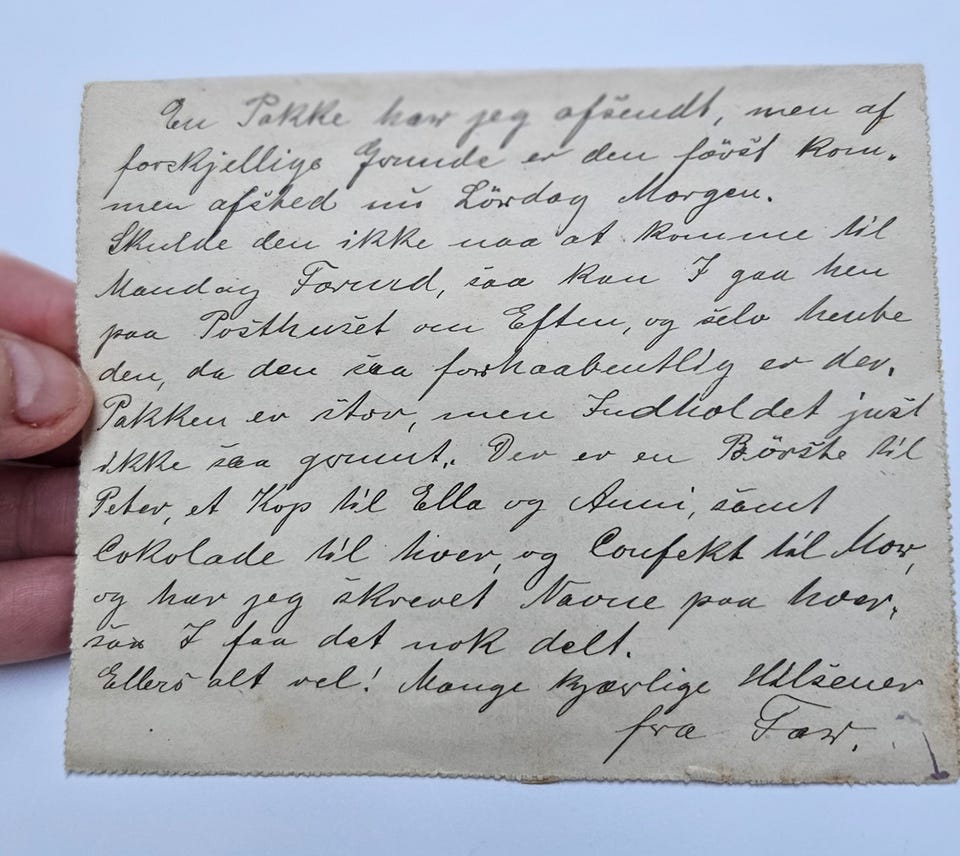 En Pakke har jeg afsendt, men af
forskjellige Grunde er den först kom-
men afsted nu Lördag Morgen.
Skulde den ikke naa at komme til
Mandag Formd, saa kan I gaa hen
paa Posthuset om Eften, og selv hente
den, da den saa forhaabentlig er der.
Pakken er stor, men Indholdet just
ikke saa grumt. Der er en Börste til
Peter, et Kop til Ella og Anni, samt
Cokolade til hver, og Confekt til Mor,
og har jeg skrevet Navne paa hver,
saa I faa det nok delt.
Ellers alt vel! Mange kjærlige Hilsener
fra Far.